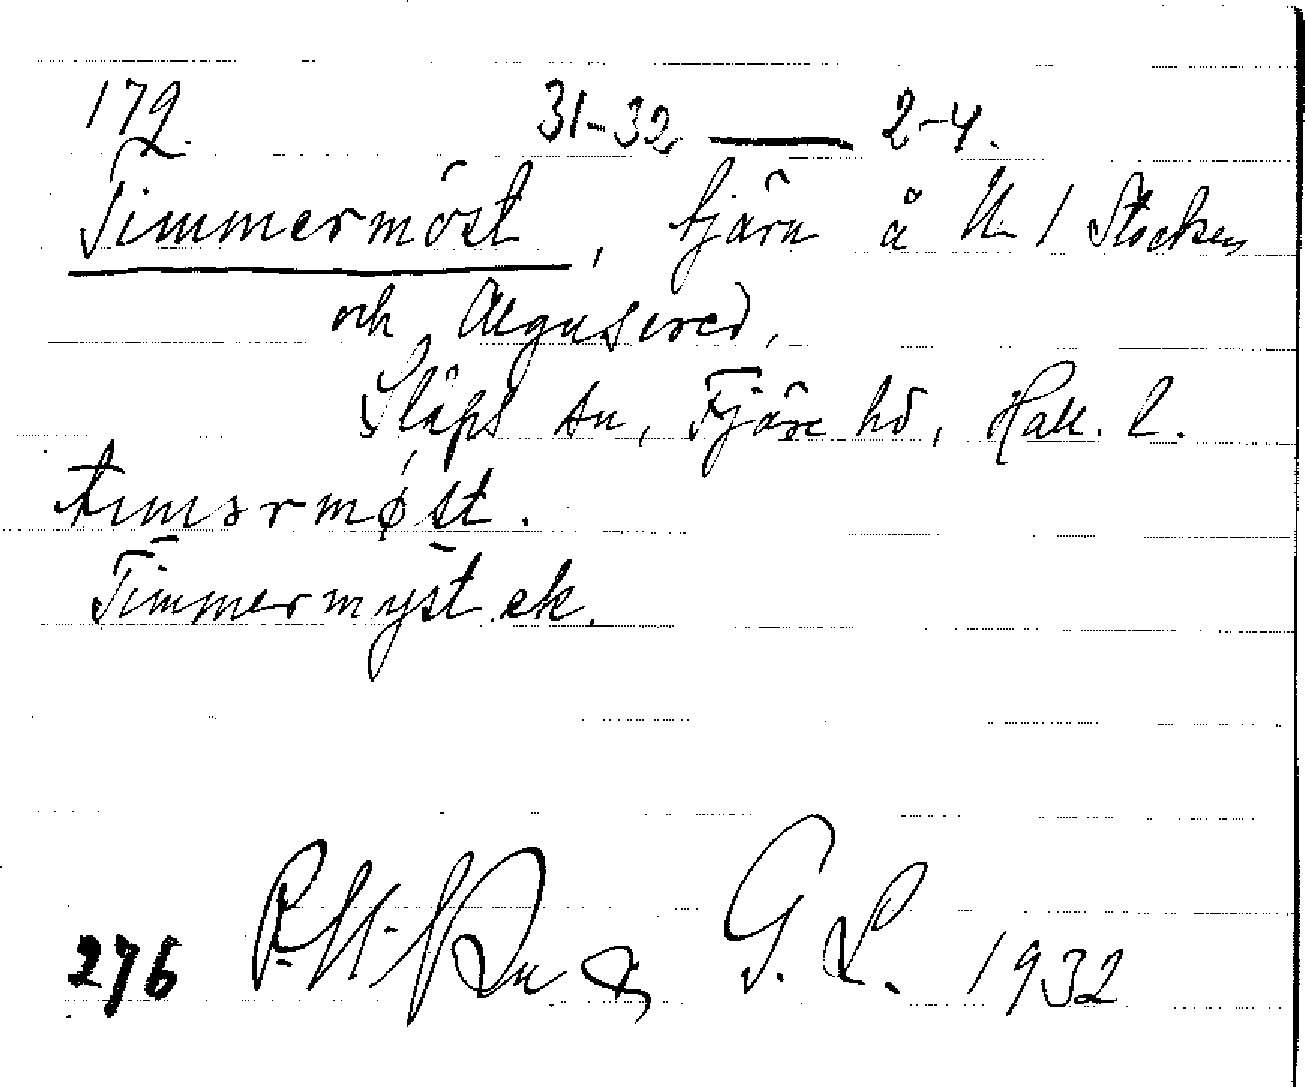 172. 31-32, — 2-4.
Timmermöst, tjärn å Nr 1 Stocken
och Algusered,
Släps sn, Fjäre hd, Hall. l.
Timmermyst. ek.
276 G. L. 1932